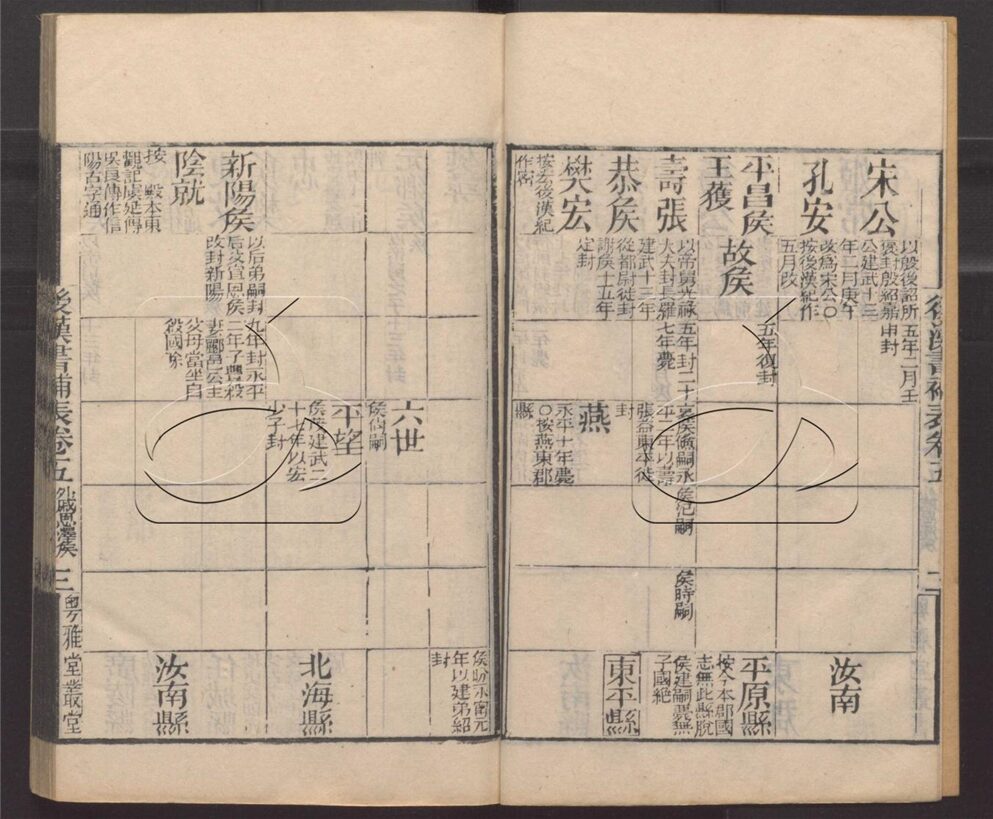 後漢書補表卷五
二
宋公
孔安
以殷後詔所
褒封殷紹嘉
公建武十三
年二月庚午
改為宋公○
按後漢紀作
五月改
五年二月壬
申封
汝南
平昌矦
王獲
故矦
五年復封
平原縣
按今本郡國
志無此縣脫
壽張
恭矦
樊宏
按宏後漢紀
作密
以帝舅光祿
大夫封長羅
建武十三年
從都尉徙封
謝矦十五年
定封
五年封二十
七年薨
哀矦儵嗣永
平二年以壽
張益東平徙
封
燕
永平十年薨
○按燕東郡
縣
矦汜嗣
矦時嗣
矦建嗣薨無
子國絶
東平縣
六世
矦盼永甯元
年以建弟紹
封
平望
矦尚嗣
矦茂建武二
十七年以宏
少子封
北海縣
新陽矦
陰就
按 殿本東
觀記虞延傳
吳良傳作信
陽古字通
以后弟嗣封
后父宣恩矦
改封新陽
九年封永平
二年子豐殺
妻酈邑公主
父母當坐自
殺國除
汝南縣
後漢書補表卷五
外戚恩澤矦
三
粵雅堂叢堂